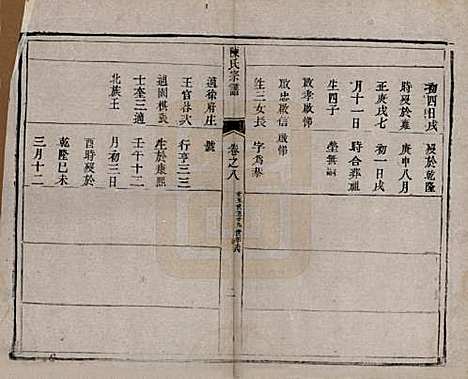 初四日戌
時歿於雍
正庚戌七
月十一日
生四子
啟孝啟悌
啟忠啟信
生三女長
歿於乾隆
庚申八月
初一日戌
時合葬祖
塋無嗣
字為
陳氏宗譜
卷之八
適徐府庄
王官春武
適
士奎三適
北族王
號
行亨三三
生於康熙
壬午十二
月初三日
酉時歿於
乾隆己未
三月十二